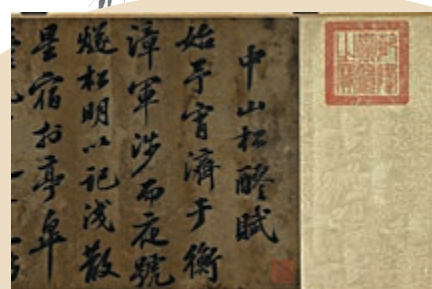 中山松醪賦
始予宵濟于衡
漳軍涉而夜號
燧松明以記淺散
星宿於亭皋